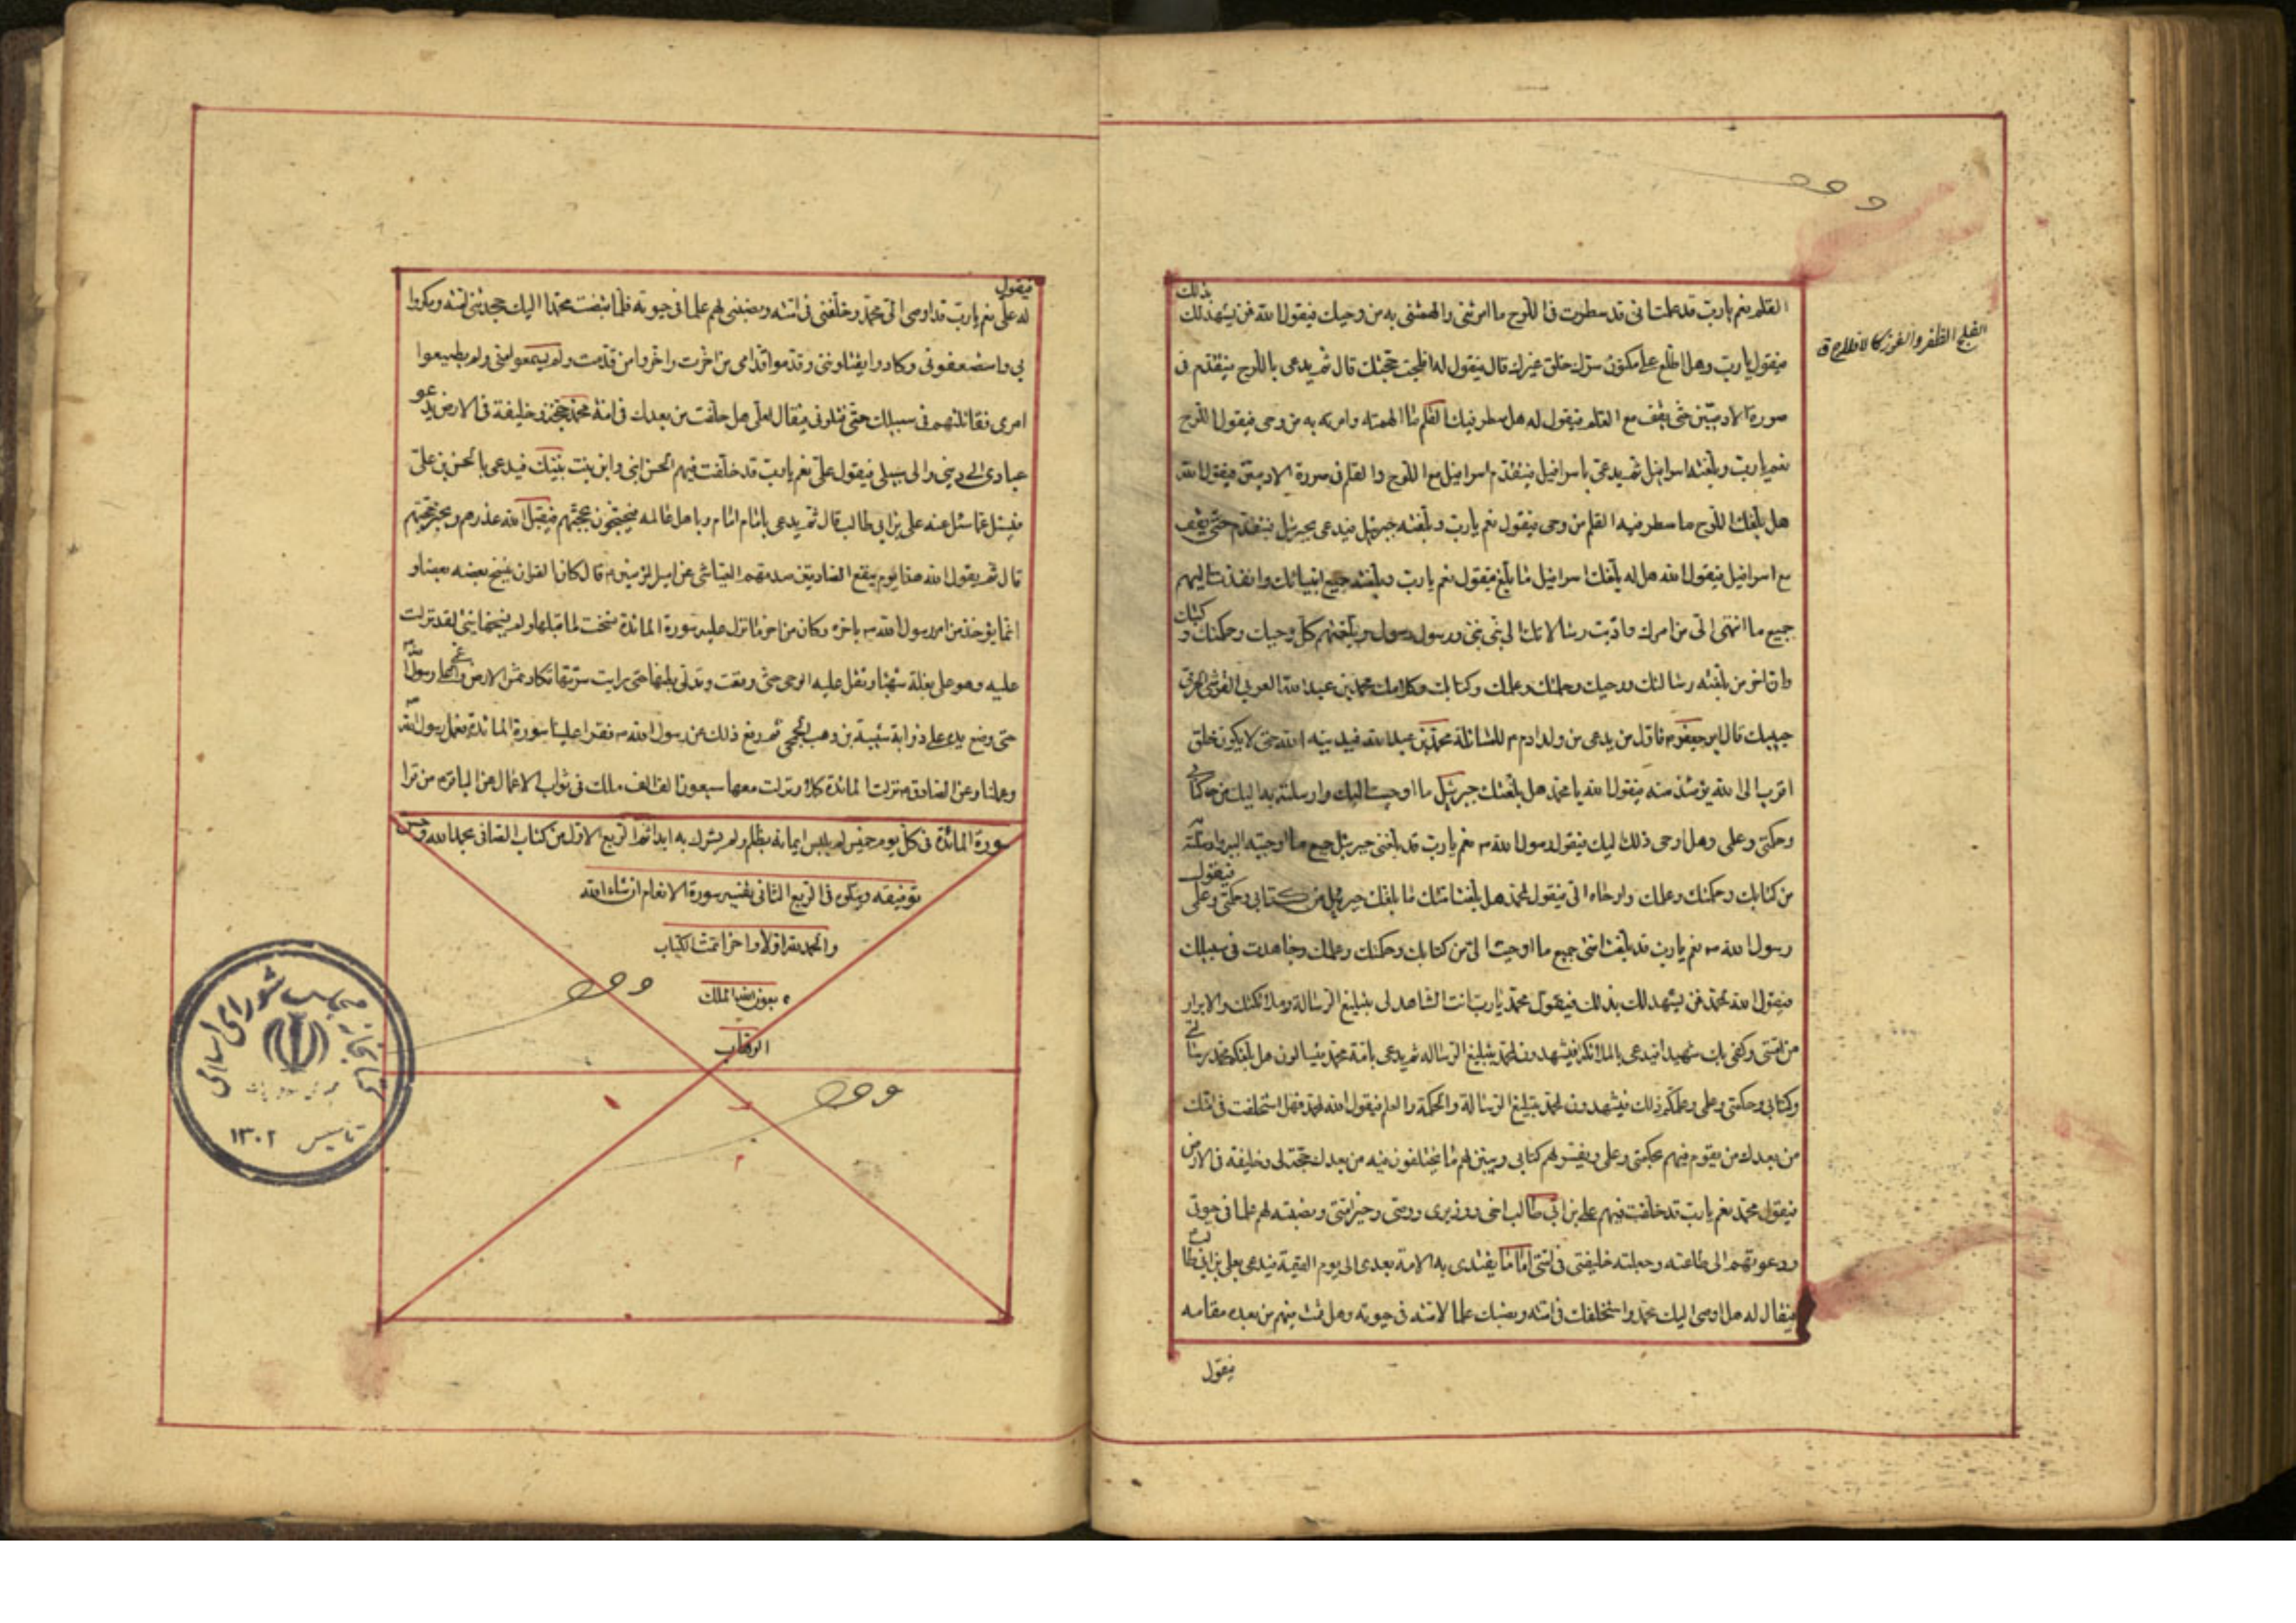 القلم نعم يا ربّ قد علمت انى قد سطرت فى اللوح ما امرتنى والهمتنى به من وحيك فيقول الله فمن يشهد لك بذلك
فيقول يا ربّ وهل اطلع على مكنون سرّك خلق غيرك قال فيقول له افلجت حجّتك قال ثم يدعى باللوح فيتقدم فى
صورة الادميّين حتى يقف مع القلم فيقول له هل سطر فيك القلم ما الهمته وامرته به من وحى فيقول اللوح
نعم يا ربّ وبلّغته اسرافيل ثم يدعى باسرافيل فيتقدم اسرافيل مع اللوح والقلم فى صورة الادميين فيقول الله
هل بلّغك اللوح ما سطر فيه القلم من وحى فيقول نعم يا ربّ وبلّغته جبرئيل فيدعى بجبرئيل فيتقدم حتى يقف
مع اسرافيل فيقول الله هل بلّغك اسرافيل ما بلّغ فيقول نعم يا ربّ وبلّغته جميع انبيائك وانفذت اليهم
جميع ما انتهى الىّ من امرك وادّيت رسالاتك الى نبى نبى ورسول رسول وبلّغتهم كل وحيك وحكمتك وكتبك
وانّ اخر من بلّغته رسالتك ووحيك وحكمتك وعلمك وكتابك وكلامك محمد بن عبد الله العربى القرشى الحرمى
حبيبك قال ابو جعفر ع فاوّل من يدعى من ولد ادم للمسائلة محمد بن عبد الله فيدنيه الله حتى لا يكون خلق
اقرب الى الله يومئذ منه فيقول الله يا محمد هل بلّغك جبرئيل ما اوحيت اليك وارسلته به اليك من كتابى
وحكمتى وعلمى وهل اوحى ذلك اليك فيقول رسول الله ص نعم يا ربّ قد بلّغنى جبرئيل جميع ما اوحيته اليه وارسلته
من كتابك وحكمتك وعلمك واوحاه الىّ فيقول لمحمد هل بلّغت امّتك ما بلّغك جبرئيل من كتابى وحكمتى وعلمى فيقول
رسول الله ص نعم يا ربّ قد بلّغت امّتى جميع ما اوحيت الىّ من كتابك وحكمتك وعلمك وجاهدت فى سبيلك
فيقول الله لمحمد فمن يشهد لك بذلك فيقول محمد يا ربّ انت الشاهد لى بتبليغ الرسالة وملائكتك والابرار
من امّتى وكفى بك شهيدا فيدعى بالملائكة فيشهدون لمحمد بتبليغ الرسالة ثم يدعى بامّة محمد فيسالون هل بلّغكم محمد رسالتى
وكتابى وحكمتى وعلمى وعلّمكم ذلك فيشهدون لمحمد بتبليغ الرسالة والحكمة والعلم فيقول الله لمحمد فهل استخلفت فى امّتك
من بعدك من يقوم فيهم بحكمتى وعلمى ويفسّر لهم كتابى ويبيّن لهم ما يختلفون فيه من بعدك حجّة لى وخليفة فى الارض
فيقول محمد نعم يا ربّ قد خلّفت فيهم على بن ابى طالب اخى ووزيرى ووصيّى وخير امّتى ونصبته لهم علما فى حيوتى
ودعوتهم الى طاعته وجعلته خليفتى فى امّتى اماما يقتدى به الامة بعدى الى يوم القيمة فيدعى بعلى بن ابى طالب
فيقال له هل اوصى اليك محمد واستخلفك فى امّته ونصبك علما لامّته فى حيوته وهل قمت فيهم من بعده مقامه
فيقول
الفلج الظفر والفوز كالافلاج ق
فيقول
له علىّ نعم يا ربّ قد اوصى الىّ محمد وخلّفنى فى امّته ونصبنى لهم علما فى حيوته فلمّا قبضت محمدا اليك جحدتنى امّته ومكروا
بى واستضعفونى وكادوا يقتلوننى وقدّموا قدّامى من اخّرت واخّروا من قدّمت ولم يسمعوا منى ولم يطيعوا
امرى فقاتلتهم فى سبيلك حتى قتلونى فيقال لعلى هل خلّفت من بعدك فى امّة محمد حجّة وخليفة فى الارض يدعو
عبادى الى دينى والى سبيلى فيقول علىّ نعم يا ربّ قد خلّفت فيهم الحسن ابنى وابن بنت نبيّك فيدعى بالحسن بن علىّ
فيسئل عمّا سئل عنه على بن ابى طالب قال ثم يدعى بامام امام وباهل عالمه فيحتجّون بحجّتهم فيقبل الله عذرهم ويجيز حجّتهم
قال ثم يقول الله هذا يوم ينفع الصادقين صدقهم العيّاشى عن امير المؤمنين ع قال كان القران ينسخ بعضه بعضا و
انّما يؤخذ من امر رسول الله ص باخره وكان من اخر ما نزل عليه سورة المائدة نسخت ما قبلها ولم ينسخها شىء لقد نزلت
عليه وهو على بغلة شهباء وثقل عليه الوحى حتى وقفت وتدلّى بطنها حتى رايت سرّتها تكاد تمسّ الارض واغمى على رسول الله
حتى وضع يده على ذوابة شيبة بن وهب الجمحى ثم رفع ذلك عن رسول الله ص فقرا علينا سورة المائدة فعمل رسول الله
وعملنا وعن الصادق ع نزلت المائدة كملا ونزلت معها سبعون الف الف ملك فى ثواب الاعمال عن الباقر ع من قرا
سورة المائدة فى كلّ يوم خميس لم يلبس ايمانه بظلم ولم يشرك به ابدا تمّ الربع الاوّل من كتاب الصافى بحمد الله وحسن
توفيقه ويتلوه فى الربع الثانى تفسير سورة الانعام ان شاء الله
والحمد لله اوّلا واخرا تمّت الكتاب
بعون الله الملك
الوهّاب
كتابخانه مجلس شوراى اسلامى
تاسيس ١٣٠٢